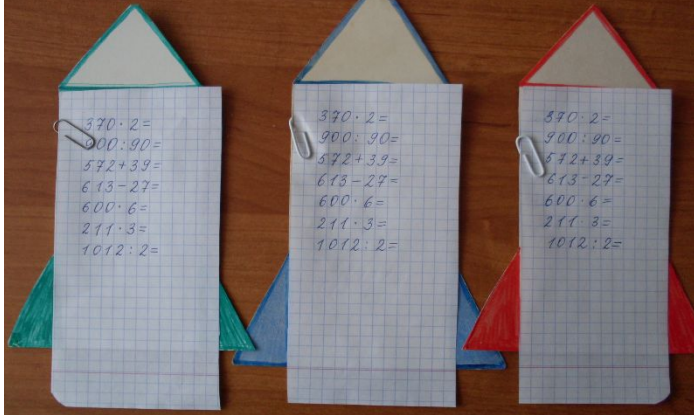 370·2=
900:90=
572+39=
613-27=
600·6=
211·3=
1012:2=
370·2=
900:90=
572+39=
613-27=
600·6=
211·3=
1012:2=
370·2=
900:90=
572+39=
613-27=
600·6=
211·3=
1012:2=